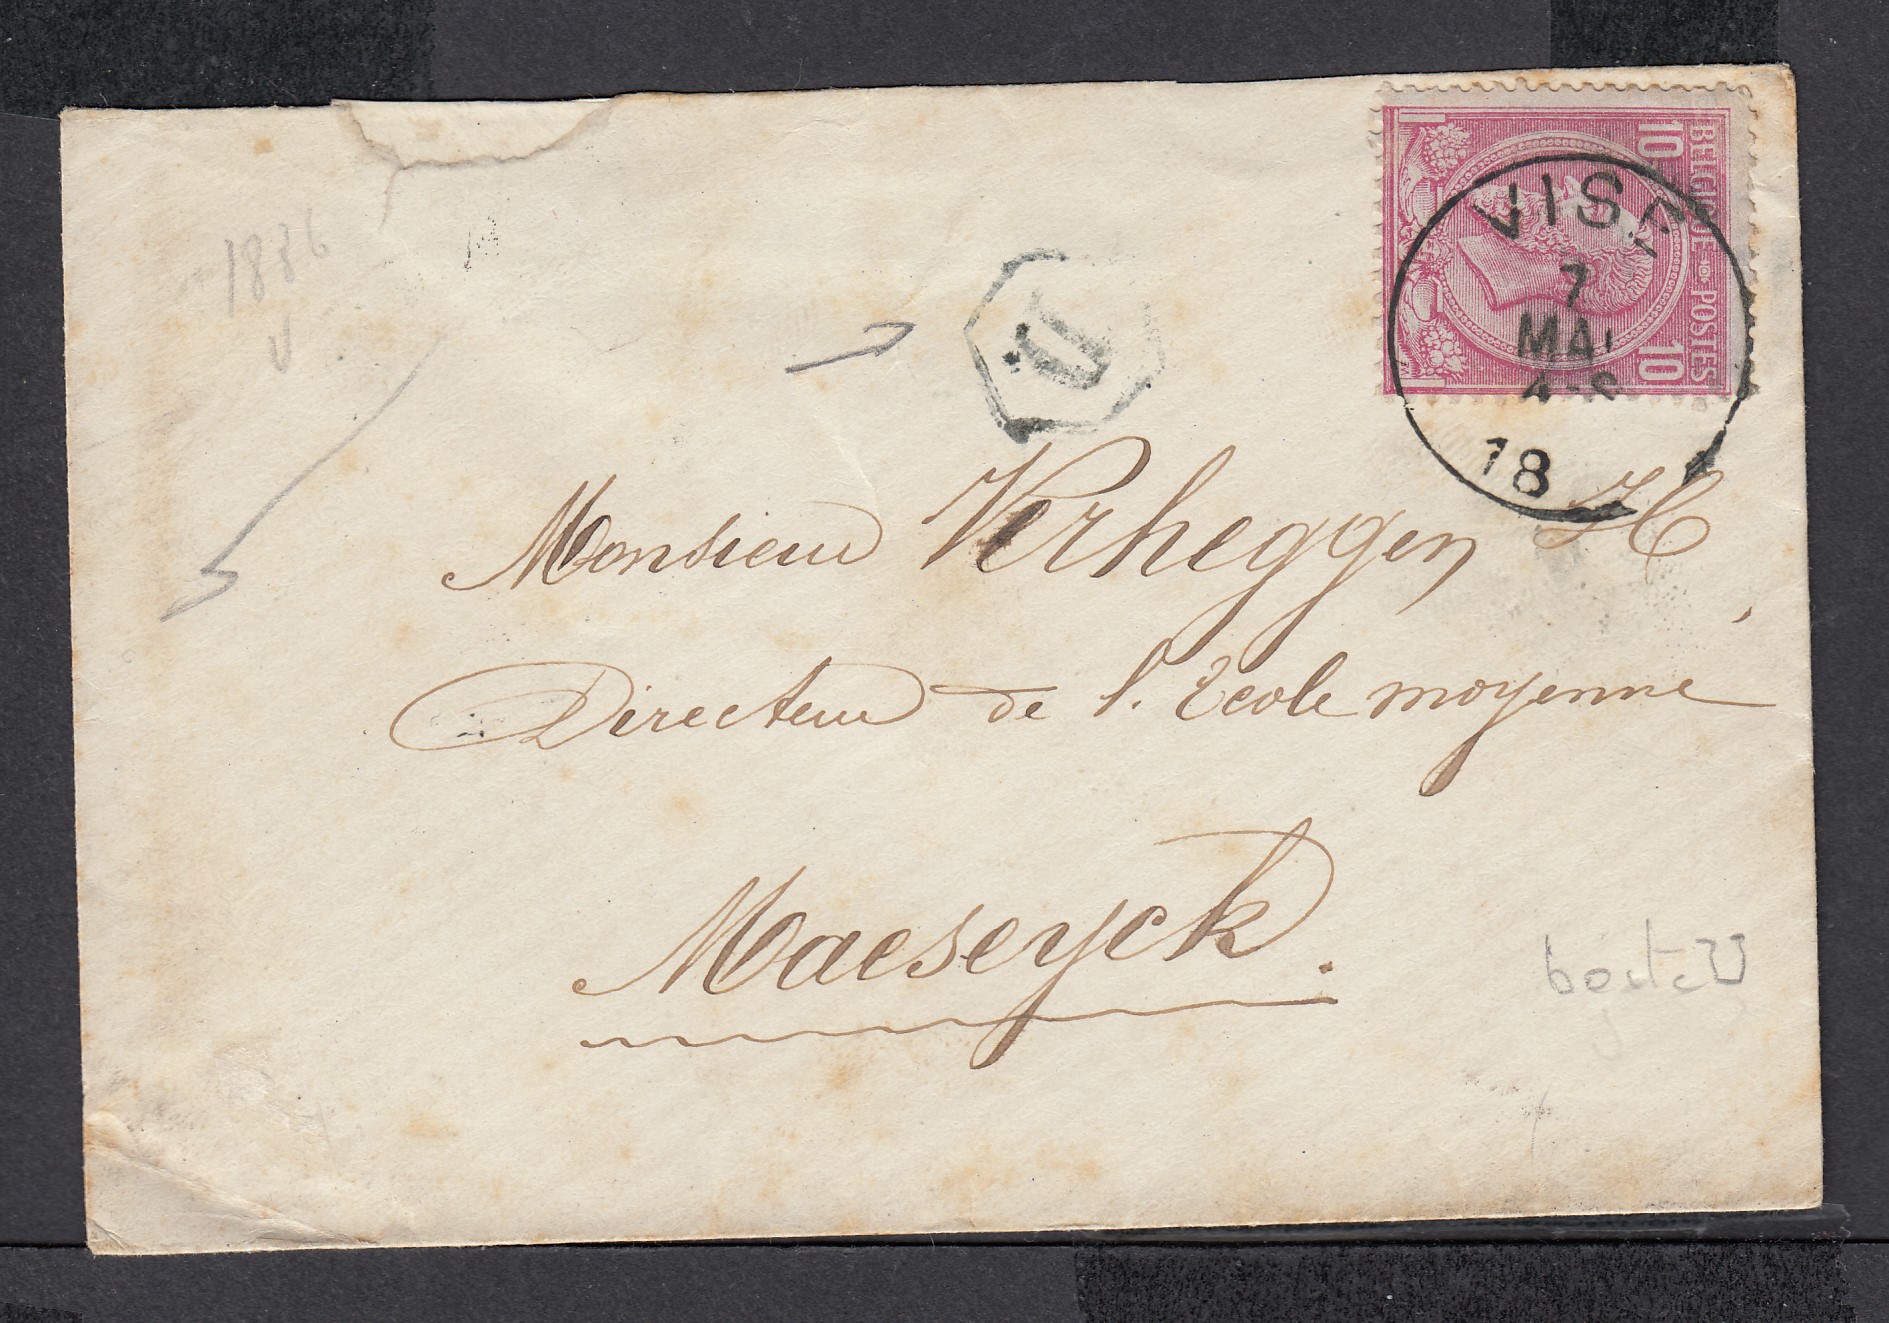 BELGIQUE POSTES
10 10
VISÉ
7
MAI
18
1886
D
Monsieur Verheggen H
Directeur de l'Ecole moyenne
Maeseyck.